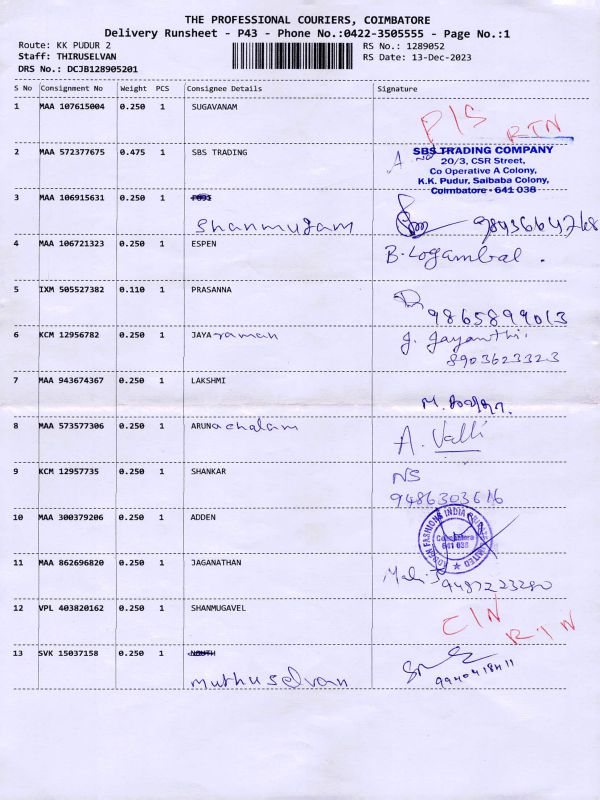 THE PROFESSIONAL COURIERS, COIMBATORE
Delivery Runsheet - P43 - Phone No.:0422-3505555 - Page No.:1
Route: KK PUDUR 2
RS No.: 1289052
Staff: THIRUSELVAN
RS Date: 13-Dec-2023
DRS No.: DCJB128905201
S No Consignment No Weight PCS Consignee Details Signature
1 MAA 107615004 0.250 1 SUGAVANAM P/S RTN
2 MAA 572377675 0.475 1 SBS TRADING
SBS TRADING COMPANY
20/3, CSR Street,
Co Operative A Colony,
K.K. Pudur, Saibaba Colony,
Coimbatore - 641 038
3 MAA 106915631 0.250 1
Shanmugam
4 MAA 106721323 0.250 1 ESPEN B. Logambal.
5 IXM 505527382 0.110 1 PRASANNA
9865899013
6 KCM 12956782 0.250 1 JAYAraman J. Jayanthi.
8903623323
7 MAA 943674367 0.250 1 LAKSHMI
8 MAA 573577306 0.250 1 ARUNachalam A. Valli
9 KCM 12957735 0.250 1 SHANKAR NS
9486303616
10 MAA 300379206 0.250 1 ADDEN
FASHIONS INDIA PRIVATE LIMITED
Coimbatore
641 038
11 MAA 862696820 0.250 1 JAGANATHAN
9487223280
12 VPL 403820162 0.250 1 SHANMUGAVEL C/N RTN
13 SVK 15037158 0.250 1
muthuselvan